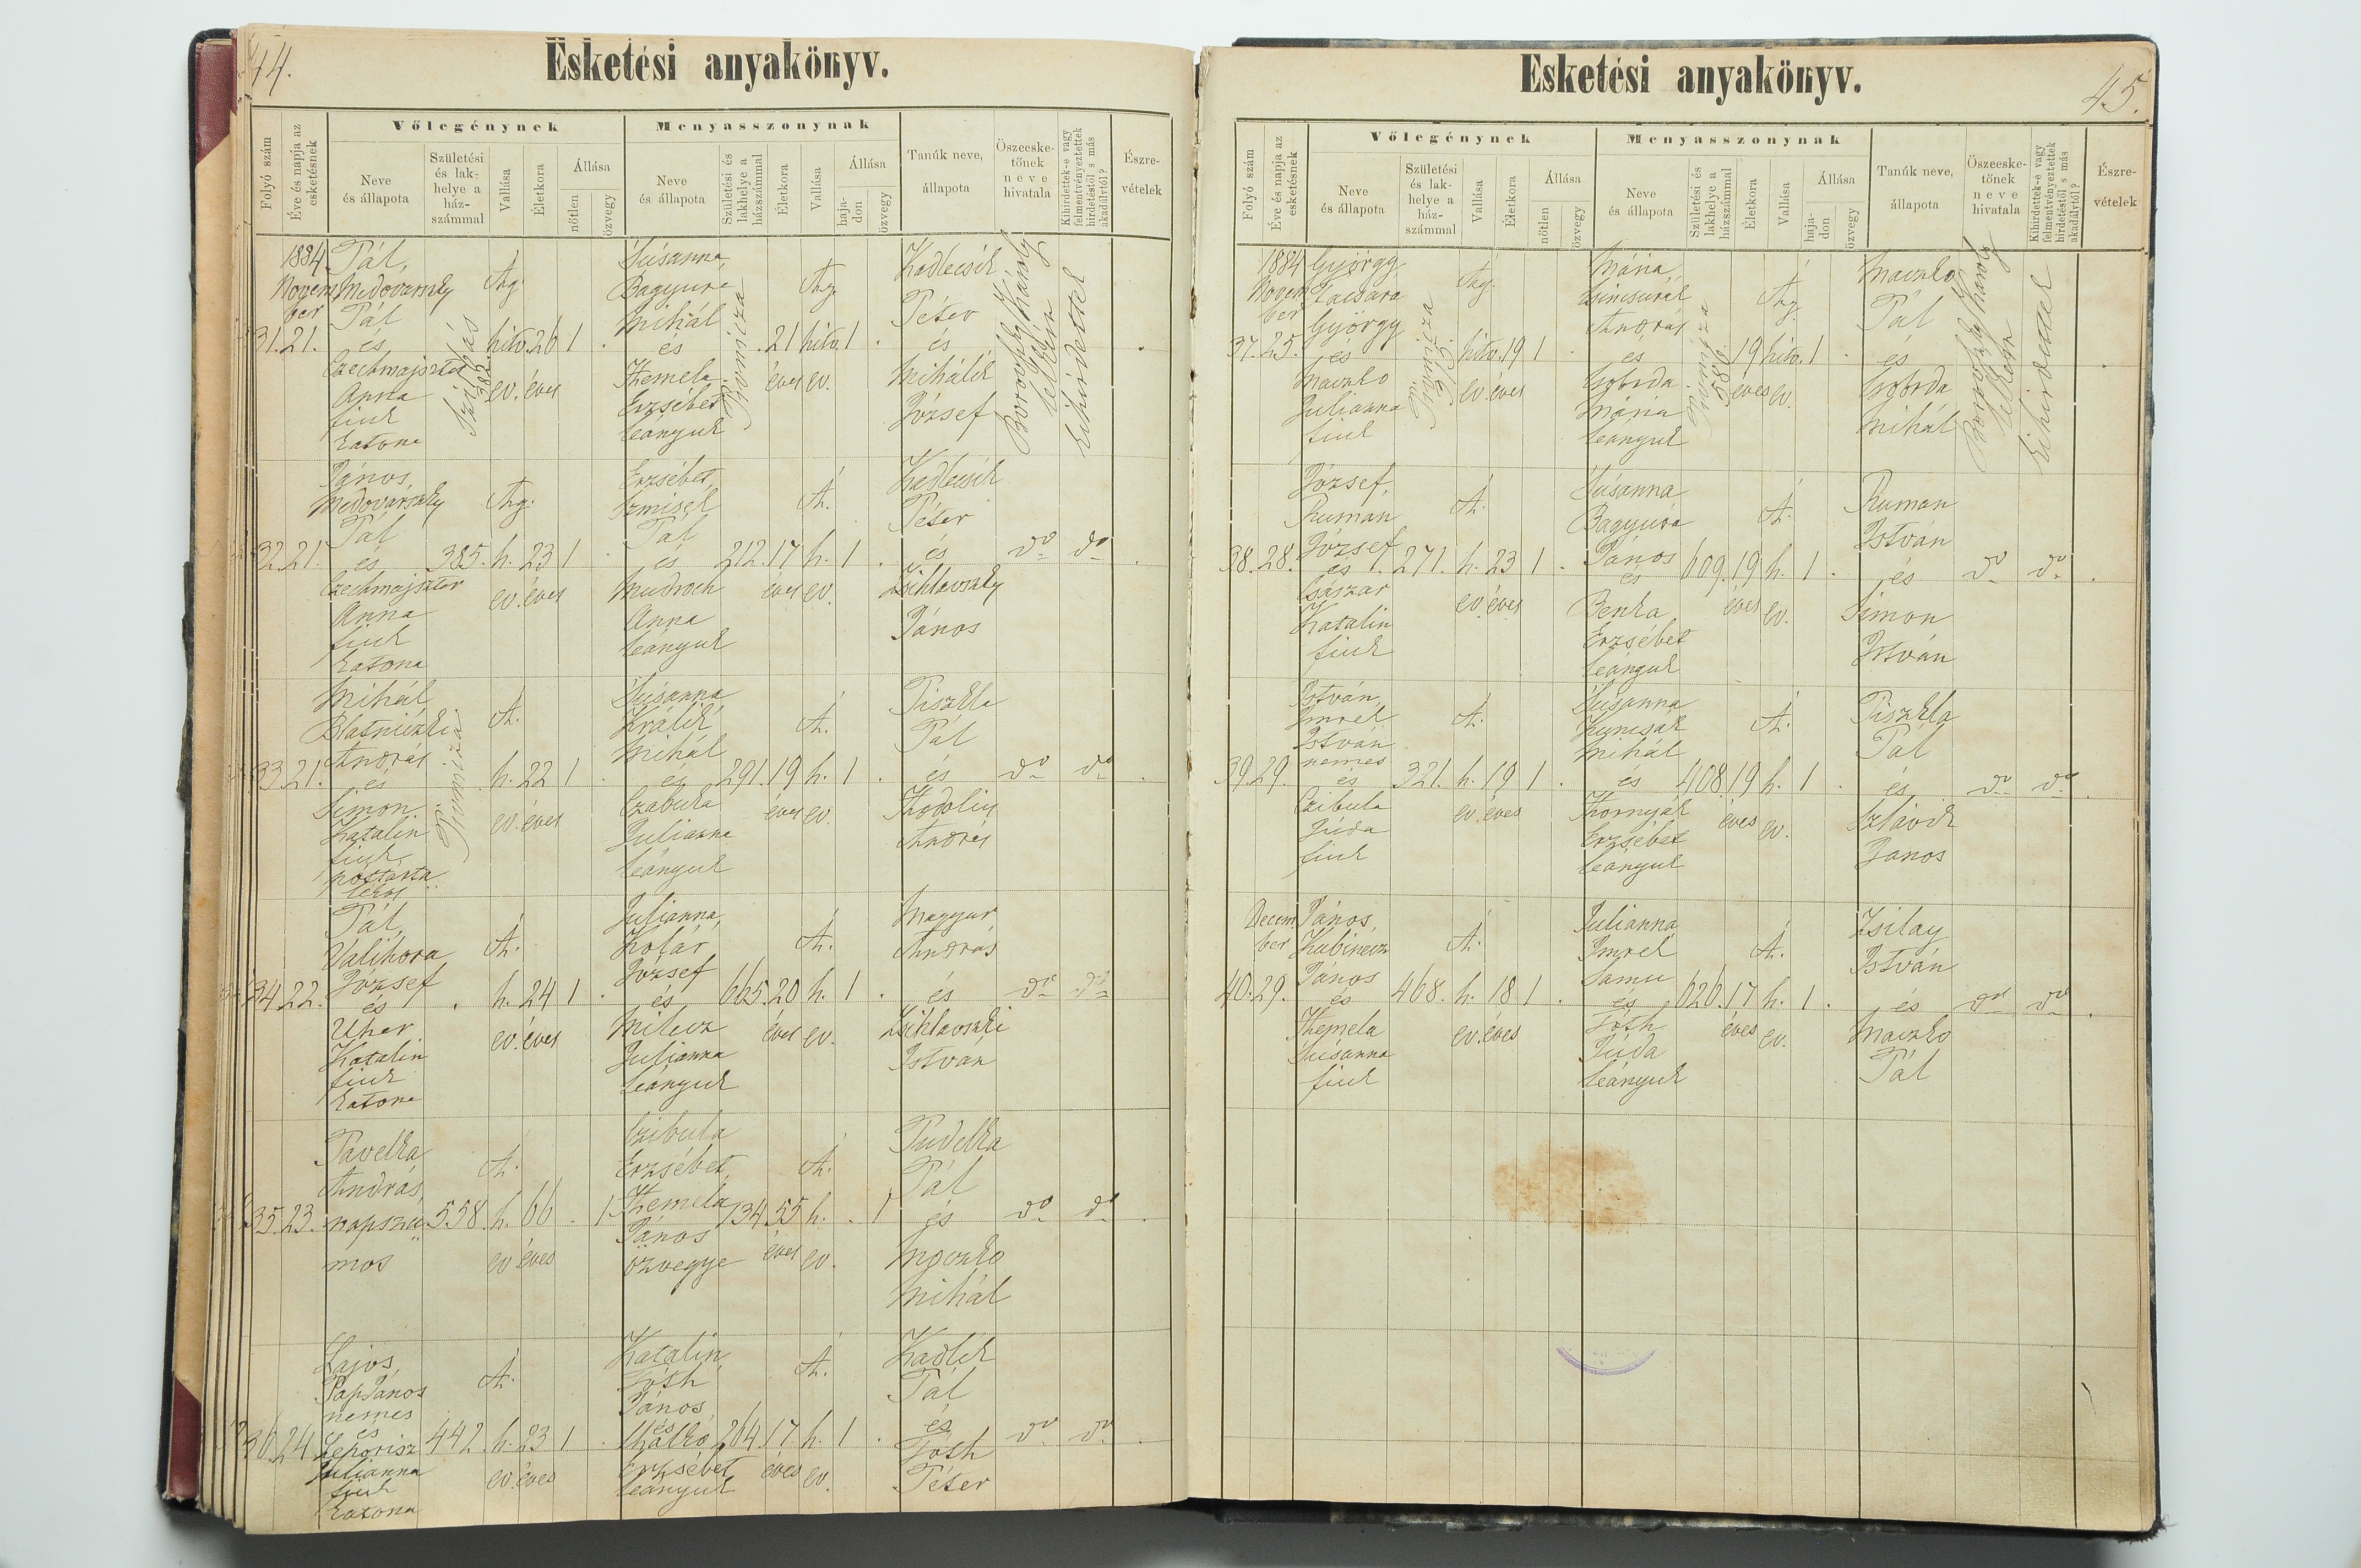 44.
Esketési anyakönyv.
Folyó szám
Éve és napja az esketésnek
Vőlegénynek
Neve és állapota
Születési és lakhelye a házszámmal
Vallása
Életkora
Állása
nőtlen
özvegy
Menyasszonynak
Neve és állapota
Születési és lakhelye a házszámmal
Életkora
Vallása
Állása
hajadon
özvegy
Tanúk neve, állapota
Öszeesketőnek neve hivatala
Kihirdettek-e vagy felmentvényeztettek hirdetéstől s más akadálytól?
Észrevételek
1884 Pál, Ág. Susanna, Ág. Kadlecsik
Novem Medovarszky Bagyura
ber Pál Mihál Péter
31. 21. és hitv. 26 1 . és . 21 hitv. 1 . és
Czechmajszter 382. Themela Mihálik
Anna ev. éves Erzsébet éves ev. József
fiuk leányuk
katona
Borovszky Károly lelkész
kihirdettek
János, Erzsébet, Kadlecsik
Medovarszky Ág. Szmisek Á. Péter
Pál Pál
32. 21. és 385. h. 23 1 . és 212. 17 h. 1 . és do do
Czechmajszter ev. éves Mudroch éves ev.
Anna Anna János
fiuk leányuk
katona
Mihál Susanna Piszkla
Blatniczki Á. Králik Á. Pál
András Mihál
33. 21. és h. 22 1 . és 291. 19 h. 1 . és do do
Simon Czabuka
Katalin ev. éves Julianna éves ev. András
fiuk leányuk
Pál, Julianna, Magyar
Valihora Á. Kolár Á. András
József József
34. 22. és . h. 24 1 . és 665. 20 h. 1 . és do do
Uher ev. éves Milecz éves ev.
Katalin Julianna István
fiuk leányuk
katona
Pavelka Czibula Pavelka
András, Á. Erzsébet, Á. Pál
35. 23. napszá 558. h. 66 . 1 Themela 134. 55 h. . 1 és do do
mos ev. éves János özvegye éves ev. Moczko Mihál
Lajos, Katalin Kadlik
Pap János Á. Tóth Á. Pál
nemes János
36. 24. és 442. h. 23 1 . és 264. 17 h. 1 . és do do
Leporisz Tóth
Julianna ev. éves Erzsébet éves ev. Péter
fiuk leányuk
katona
45.
Esketési anyakönyv.
Folyó szám
Éve és napja az esketésnek
Vőlegénynek
Neve és állapota
Születési és lakhelye a házszámmal
Vallása
Életkora
Állása
nőtlen
özvegy
Menyasszonynak
Neve és állapota
Születési és lakhelye a házszámmal
Életkora
Vallása
Állása
hajadon
özvegy
Tanúk neve, állapota
Öszeesketőnek neve hivatala
Kihirdettek-e vagy felmentvényeztettek hirdetéstől s más akadálytól?
Észrevételek
1884 György Ág. Mária Ág. Maczko
Novem
ber György András Pál
37. 25. és hitv. 19 1 . és 19 hitv. 1 . és
Maczko ev. éves 586. éves ev.
Julianna Mária Mihál
fiuk leányuk
Borovszky Károly lelkész
kihirdettek
József, Susanna Ruman
Ruman Á. Bagyura Á. István
József János
38. 28. és 271. h. 23 1 . és 609. 19 h. 1 . és do do
Császár ev. éves Benka éves ev. Simon
Katalin Erzsébet István
fiuk leányuk
István, Susanna Piszkla
Imrek Á. Á. Pál
István Mihál
nemes
39. 29. és 321. h. 19 1 . és 408. 19 h. 1 . és do do
Czibula ev. éves éves ev. Szlávik
Júda Erzsébet János
fiuk leányuk
Decem János, Julianna Zsilay
ber Kubinecz Á. Imrek Á. István
János Samu
40. 29. és 468. h. 18 1 . és 626. 17 h. 1 . és do do
Themela ev. éves Tóth éves ev. Maczko
Susanna Júda Pál
fiuk leányuk